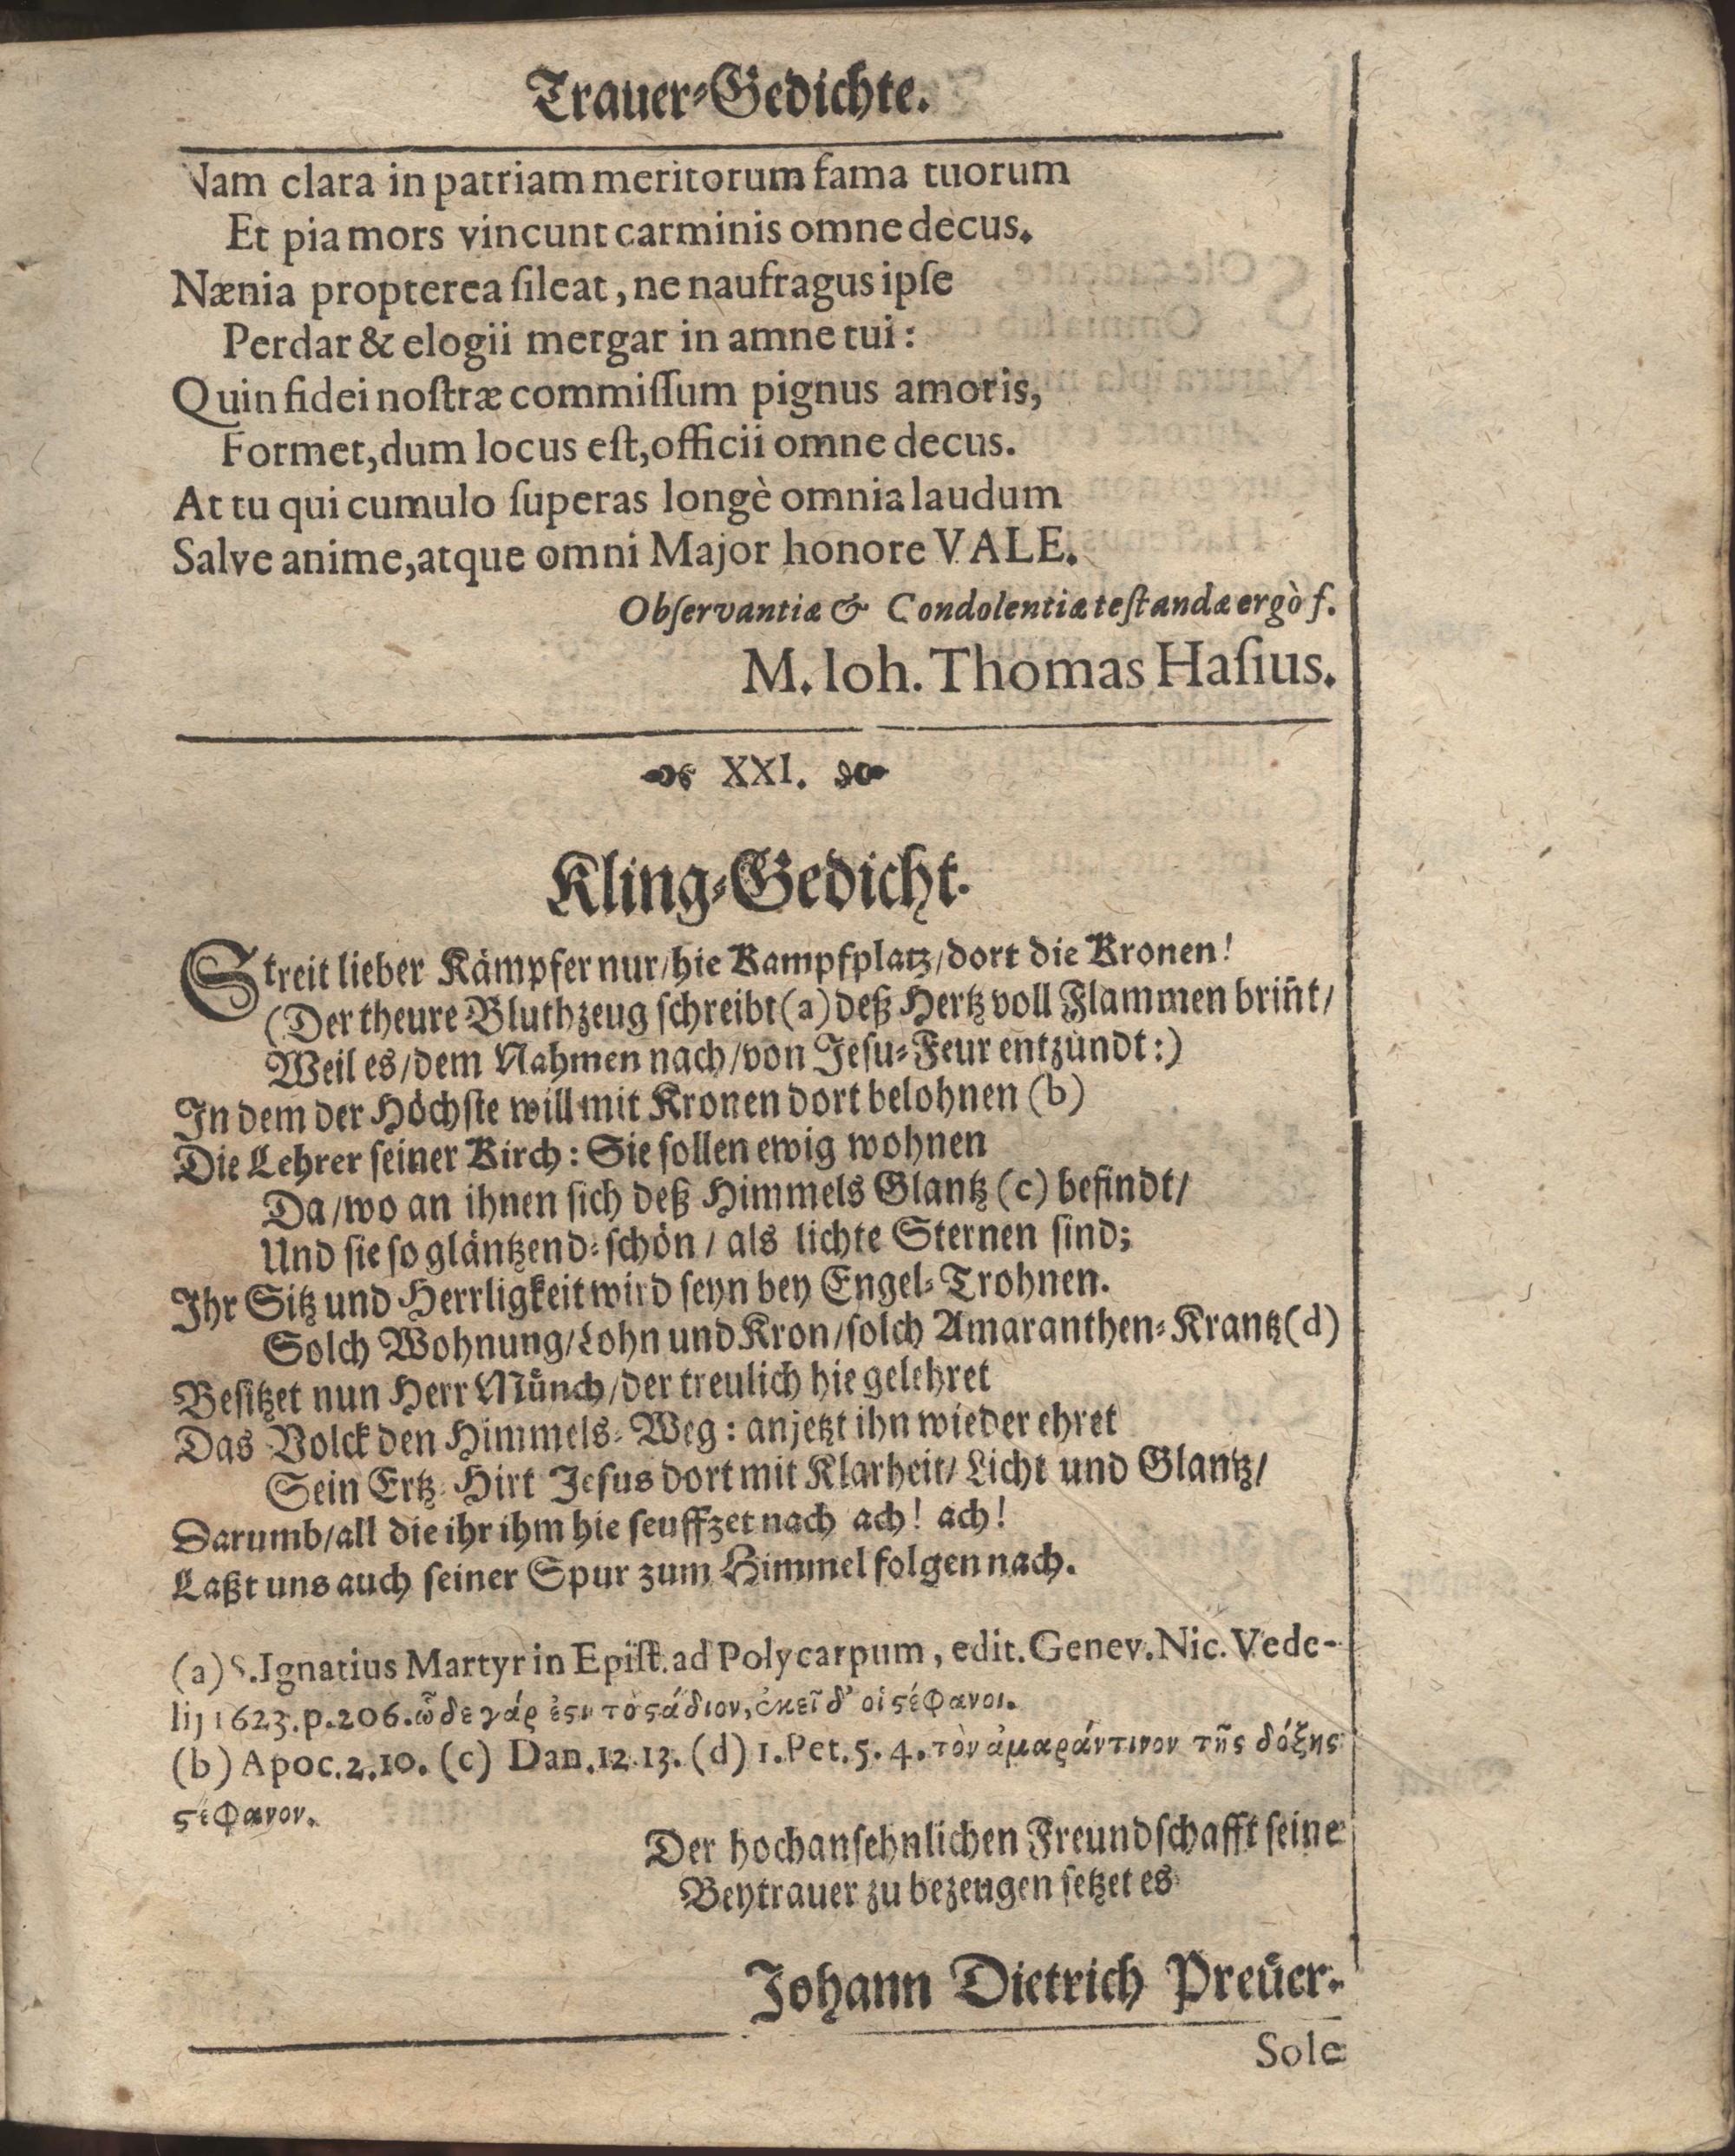 Trauer-Gedichte.
Nam clara in patriam meritorum fama tuorum
Et pia mors vincunt carminis omne decus.
Nænia propterea ſileat, ne naufragus ipſe
Perdar & elogii mergar in amne tui:
Quin fidei noſtræ commiſſum pignus amoris,
Formet, dum locus eſt, officii omne decus.
At tu qui cumulo ſuperas longè omnia laudum
Salve anime, atque omni Major honore VALE.
Obſervantiæ & Condolentiæ teſtandæ ergò f.
M. Ioh. Thomas Haſius.
XXI.
Kling-Gedicht.
Streit lieber Kämpfer nur/hie Kampfplatz/dort die Kronen!
(Der theure Bluthzeug ſchreibt (a) deß Hertz voll Flammen briñt/
Weil es/dem Nahmen nach/von Jeſu-Feur entzündt:)
In dem der Höchſte will mit Kronen dort belohnen (b)
Die Lehrer ſeiner Kirch: Sie ſollen ewig wohnen
Da/wo an ihnen ſich deß Himmels Glantz (c) befindt/
Und ſie ſo gläntzend-ſchön/ als lichte Sternen ſind;
Ihr Sitz und Herrligkeit wird ſeyn bey Engel-Trohnen.
Solch Wohnung/Lohn und Kron/ſolch Amaranthen-Krantz (d)
Beſitzet nun Herr Münch/der treulich hie gelehret
Das Volck den Himmels-Weg: anjetzt ihn wieder ehret
Sein Ertz-Hirt Jeſus dort mit Klarheit/ Licht und Glantz/
Darumb/all die ihr ihm hie ſeuffzet nach ach! ach!
Laßt uns auch ſeiner Spur zum Himmel folgen nach.
(a) S. Ignatius Martyr in Epiſt. ad Polycarpum, edit. Genev. Nic. Vede-
lij 1623. p. 206. ὧδε γάρ ἐϛι τὸ ϛάδιον, ἐκεῖ δ' οἱ ϛέφανοι.
(b) Apoc. 2. 10. (c) Dan. 12. 13. (d) 1. Pet. 5. 4. τὸν ἀμαράντινον τῆς δόξης
ϛέφανον.
Der hochanſehnlichen Freundſchafft ſeine
Beytrauer zu bezeugen ſetzet es
Johann Dietrich Preüer.
Sole